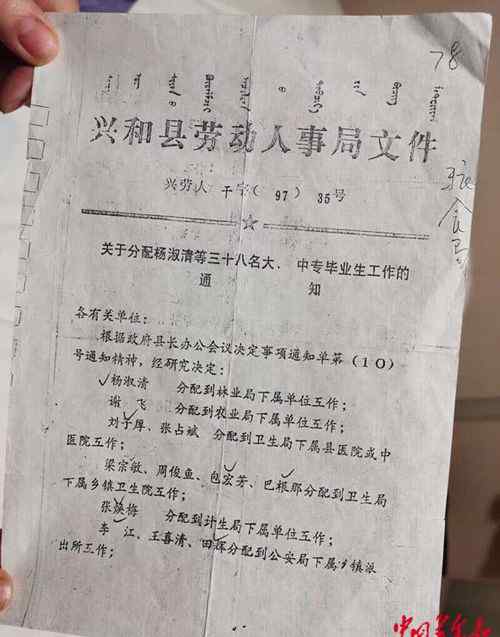 78
兴和县劳动人事局文件
兴劳人干字(97)35号
关于分配杨淑清等三十八名大、中专毕业生工作的
通知
各有关单位:
根据政府县长办公会议决定事项通知单第(10)
号通知精神,经研究决定:
杨淑清 分配到林业局下属单位工作;
谢飞 分配到农业局下属单位工作;
刘于厚、张占斌 分配到卫生局下属县医院或中
医院工作;
梁宗敏、周俊鱼、包宏芳、巴根那分配到卫生局
下属乡镇卫生院工作;
张焕梅 分配到计生局下属单位工作;
李江、王喜清、田辉分配到公安局下属乡镇派
出所工作;
中国青年报